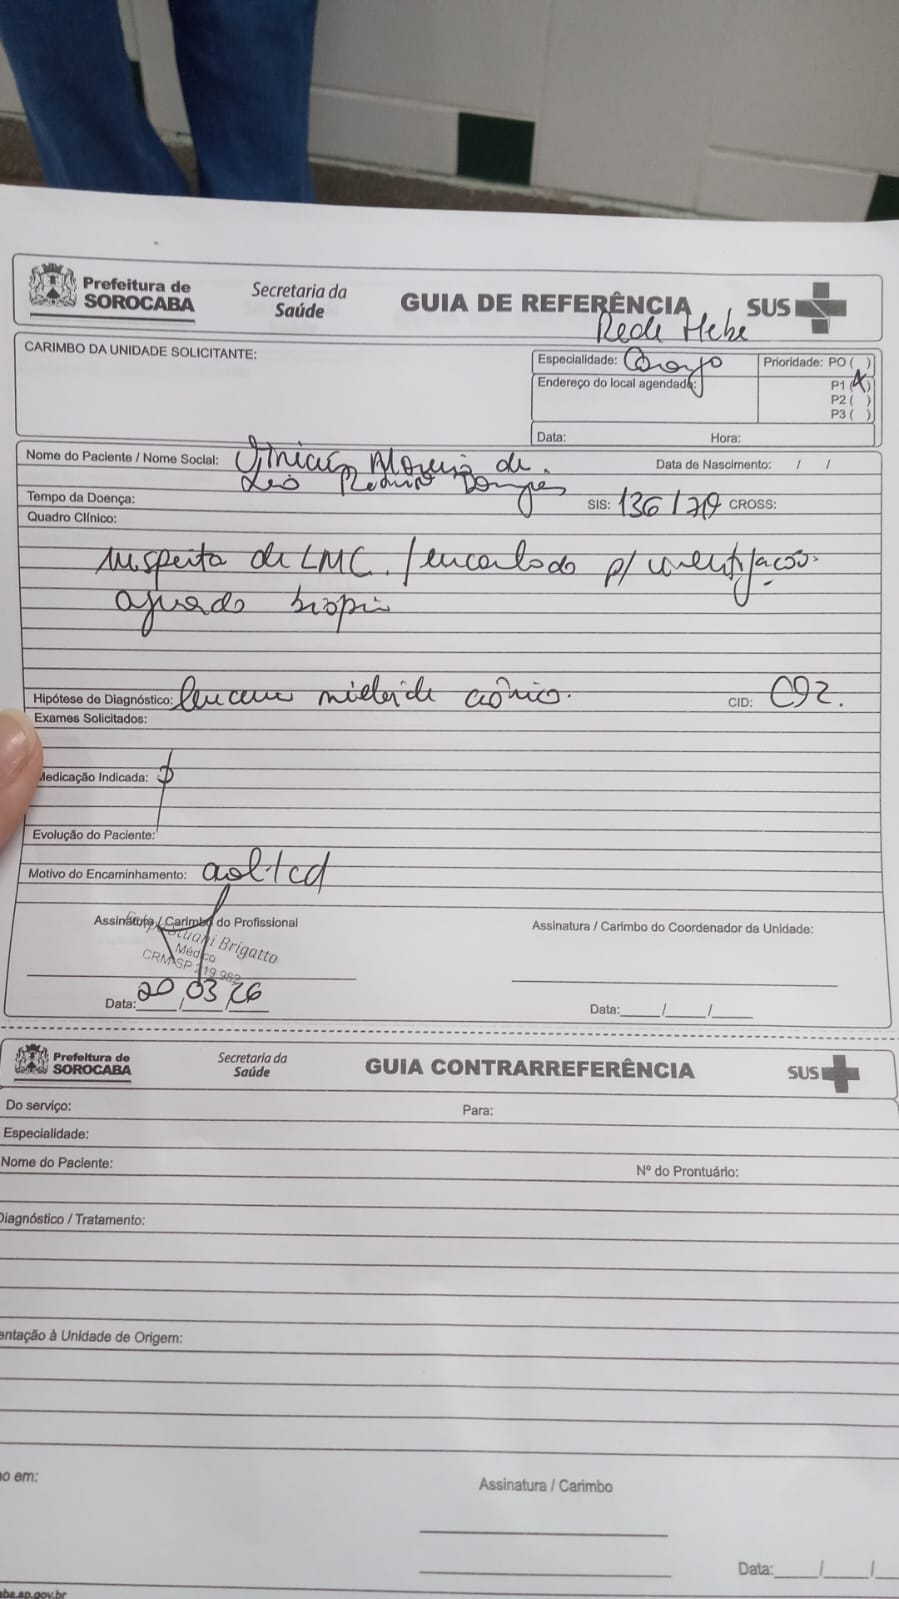 Prefeitura de
SOROCABA
Secretaria da
Saúde
GUIA DE REFERÊNCIA
SUS
Rede Hebe
CARIMBO DA UNIDADE SOLICITANTE:
Especialidade:
Prioridade: PO ( )
Endereço do local agendado:
P1 (X)
P2 ( )
P3 ( )
Data: Hora:
Nome do Paciente / Nome Social: de
Data de Nascimento: / /
Tempo da Doença:
SIS: 136 CROSS:
Quadro Clínico:
suspeita de LMC. / p/ investigação.
aguardo
Hipótese de Diagnóstico: mieloide crônico.
CID: C92.
Exames Solicitados:
Medicação Indicada:
Evolução do Paciente:
Motivo do Encaminhamento:
Assinatura / Carimbo do Profissional
Assinatura / Carimbo do Coordenador da Unidade:
Brigatto
Médico
CRM-SP
Data: 20/03/26
Data:____/____/____
Prefeitura de
SOROCABA
Secretaria da
Saúde
GUIA CONTRARREFERÊNCIA
SUS
Do serviço:
Para:
Especialidade:
Nome do Paciente:
Nº do Prontuário:
Diagnóstico / Tratamento:
entação à Unidade de Origem:
no em:
Assinatura / Carimbo
Data:____/____/____
aba.sp.gov.br